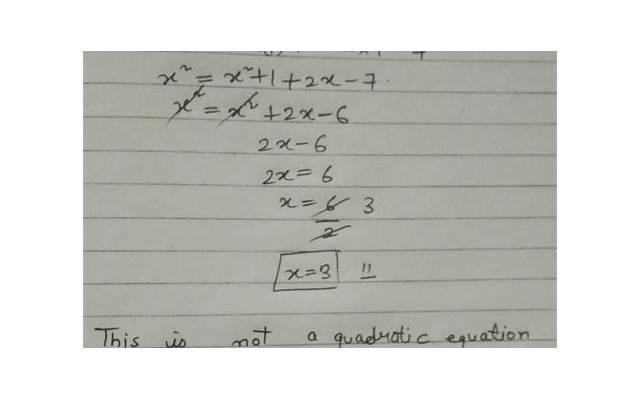 x² = x²+1+2x-7.
x² = x²+2x-6
2x-6
2x=6
x=6/2 3
x=3 "
This is not a quadratic equation